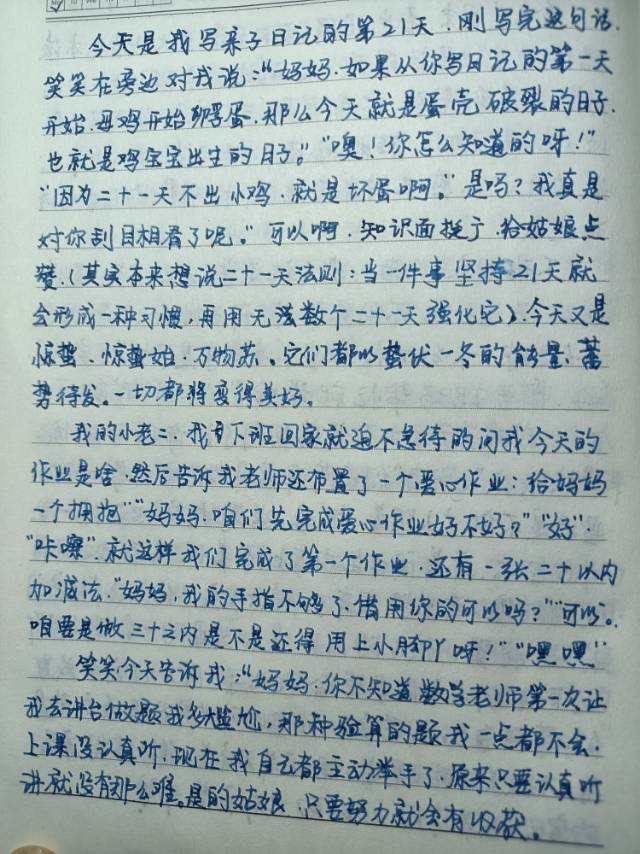 今天是我写亲子日记的第21天.刚写完这句话.
笑笑在旁边对我说:“妈妈.如果从你写日记的第一天
开始.母鸡开始孵蛋.那么今天就是蛋壳破裂的日子.
也就是鸡宝宝出生的日子。”“噢!你怎么知道的呀!”
“因为二十一天不出小鸡.就是坏蛋啊。”是吗?我真是
对你刮目相看了呢。”可以啊.知识面挺广.给姑娘点
赞.(其实本来想说二十一天法则:当一件事坚持21天就
会形成一种习惯,再用无法数个二十一天强化它).今天又是
惊蛰.惊蛰始.万物苏。它们都以蛰伏一冬的能量、蓄
势待发。一切都将变得美好。
我的小老二.我下班回家就迫不急待的问我今天的
作业是啥.然后告诉我老师还布置了一个爱心作业:给妈妈
一个拥抱”“妈妈.咱们先完成爱心作业好不好?”“好”.
“咔嚓”.就这样我们完成了第一个作业.还有一张二十以内
加减法.“妈妈,我的手指不够了.借用你的可以吗?”“可以”。
咱要是做三十之内是不是还得用上小脚丫呀!”“嘿嘿”
笑笑今天告诉我:“妈妈.你不知道数学老师第一次让
我去讲台做题我多尴尬,那种验算的题我一点都不会.
上课没认真听.现在我自己都主动举手了.原来只要认真听
讲就没有那么难。是的姑娘.只要努力就会有收获。